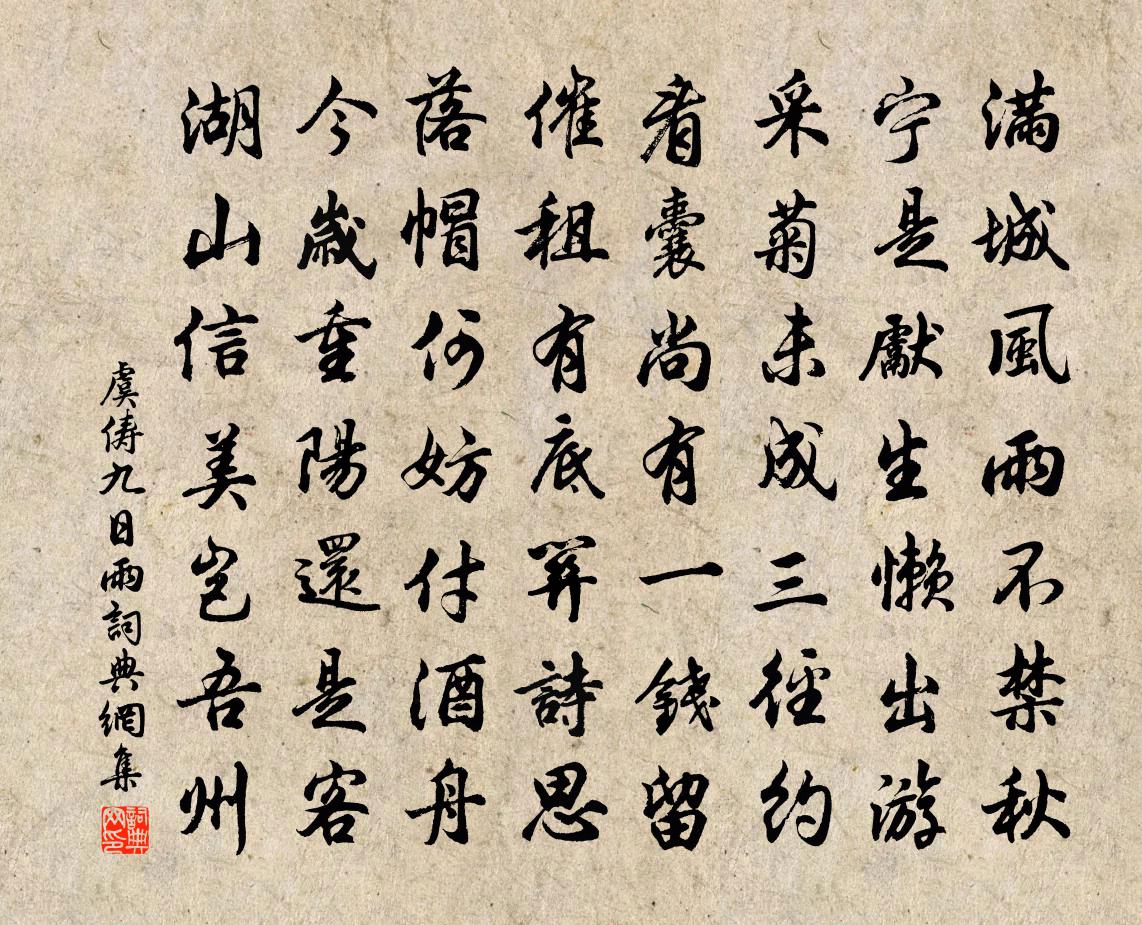 滿城風雨不禁秋
宁是獻生懶出游
采菊未成三徑約
看囊尚有一錢留
催租有底詩思
落帽何妨付酒舟
今歲重陽還是客
湖山信美豈吾州
虞儔九日雨詞典網集
詞典网印